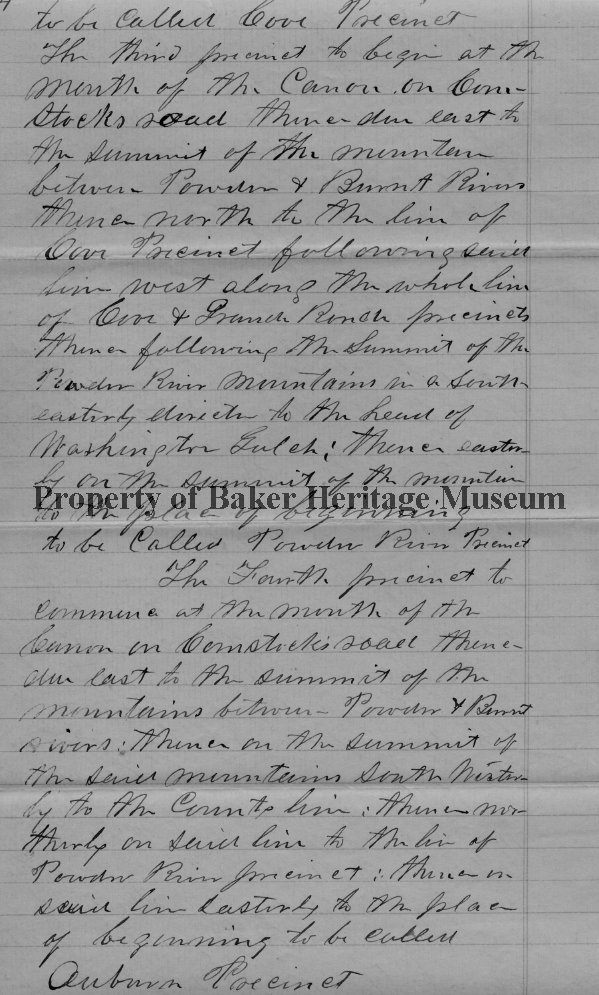 to be called Cove Precinct
The third precinct to begin at the
mouth of the Canon on Com-
stocks road thence due east to
the summit of the mountain
between Powder & Burnt Rivers
thence north to the line of
Cove Precinct following said
line west along the whole line
of Cove & Grande Ronde precincts
thence following the Summit of the
Powder River Mountains in a South
easterly directn to the head of
Washington Gulch; thence easter-
ly on the summit of the mountain
Property of Baker Heritage Museum
to the place of beginning
to be Called Powder River Precinct
The Fourth precinct to
commence at the mouth of the
Canon on Comstocks road thence
due east to the summit of the
mountains between Powder & Burnt
rivers; thence on the summit of
the said mountains South Wester-
ly to the County line; thence nor-
therly on said line to the line of
Powder River precinct; thence on
said line Easterly to the place
of beginning to be called
Auburn Precinct